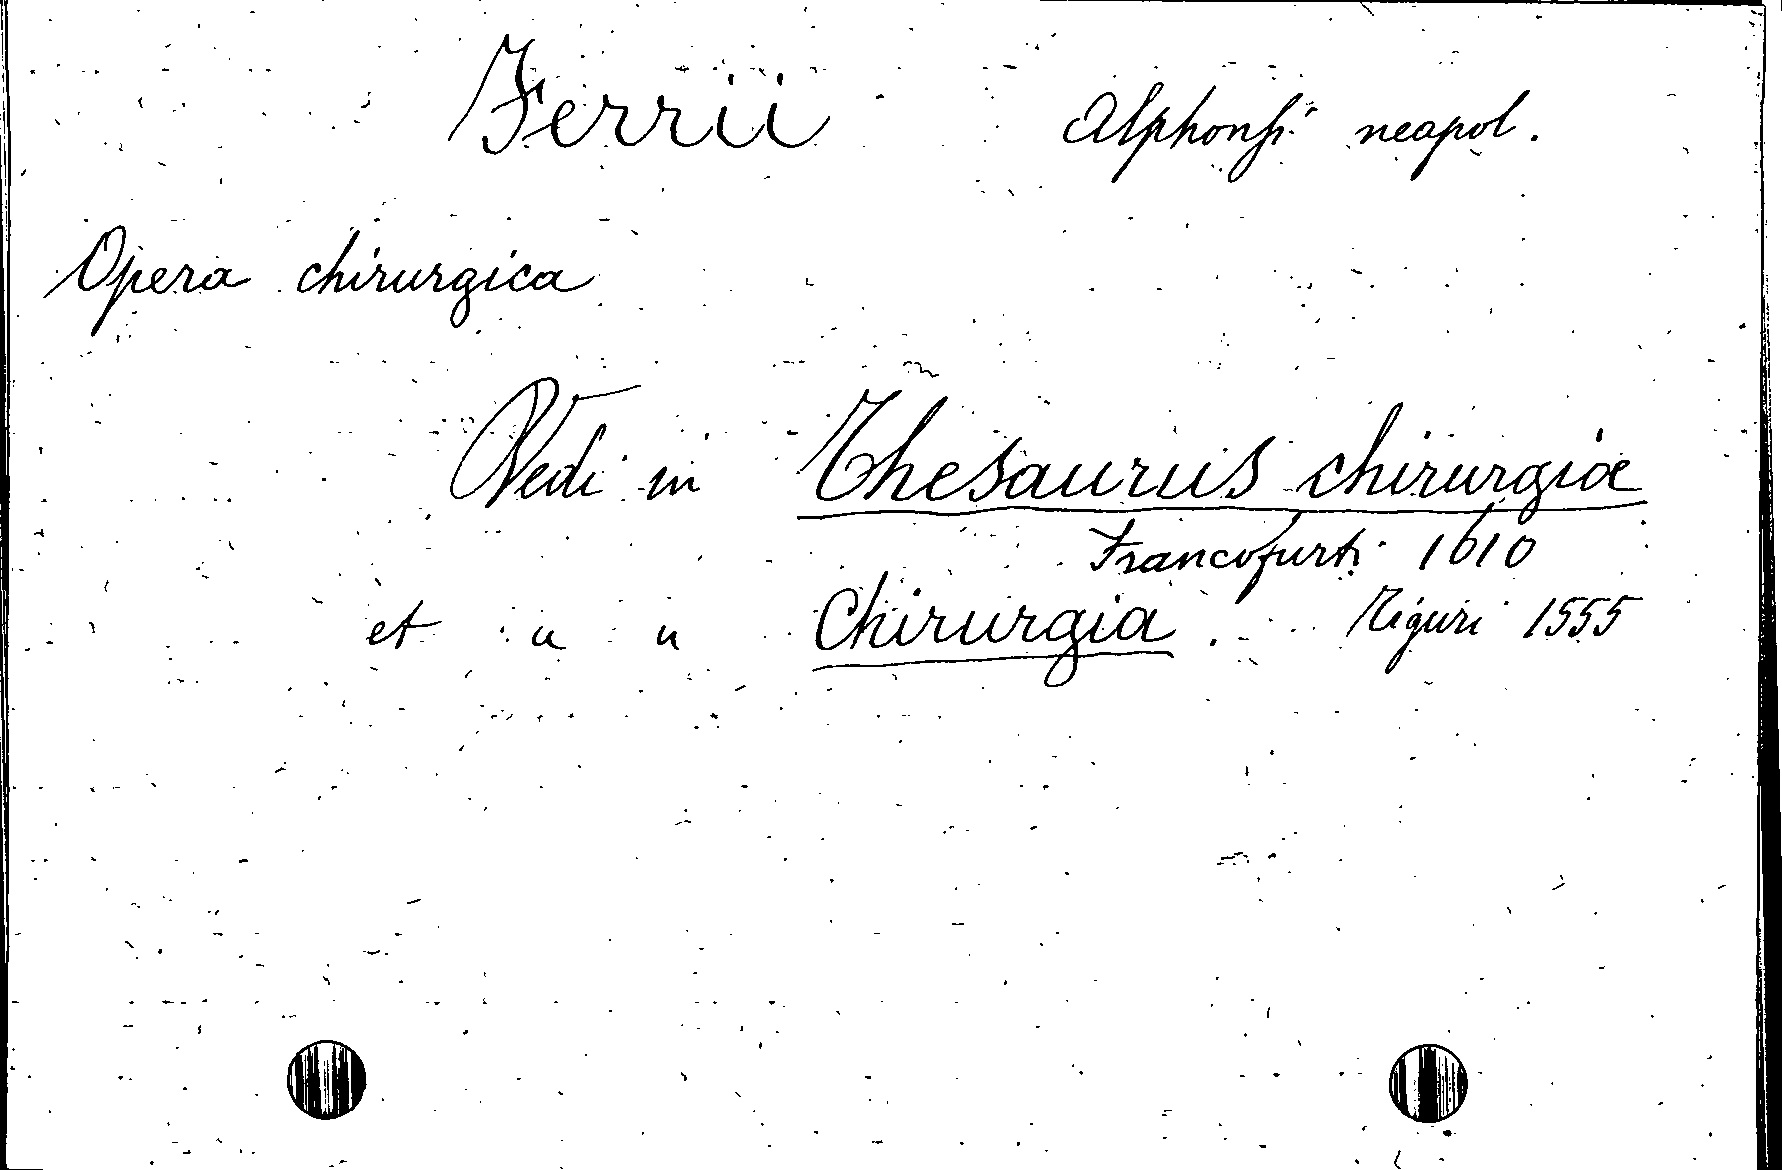 Ferrii Alphonsi neapol.
Opera chirurgica
Vedi in Thesaurus chirurgiæ
Francofurti 1610
et " " Chirurgia. Tiguri 1555